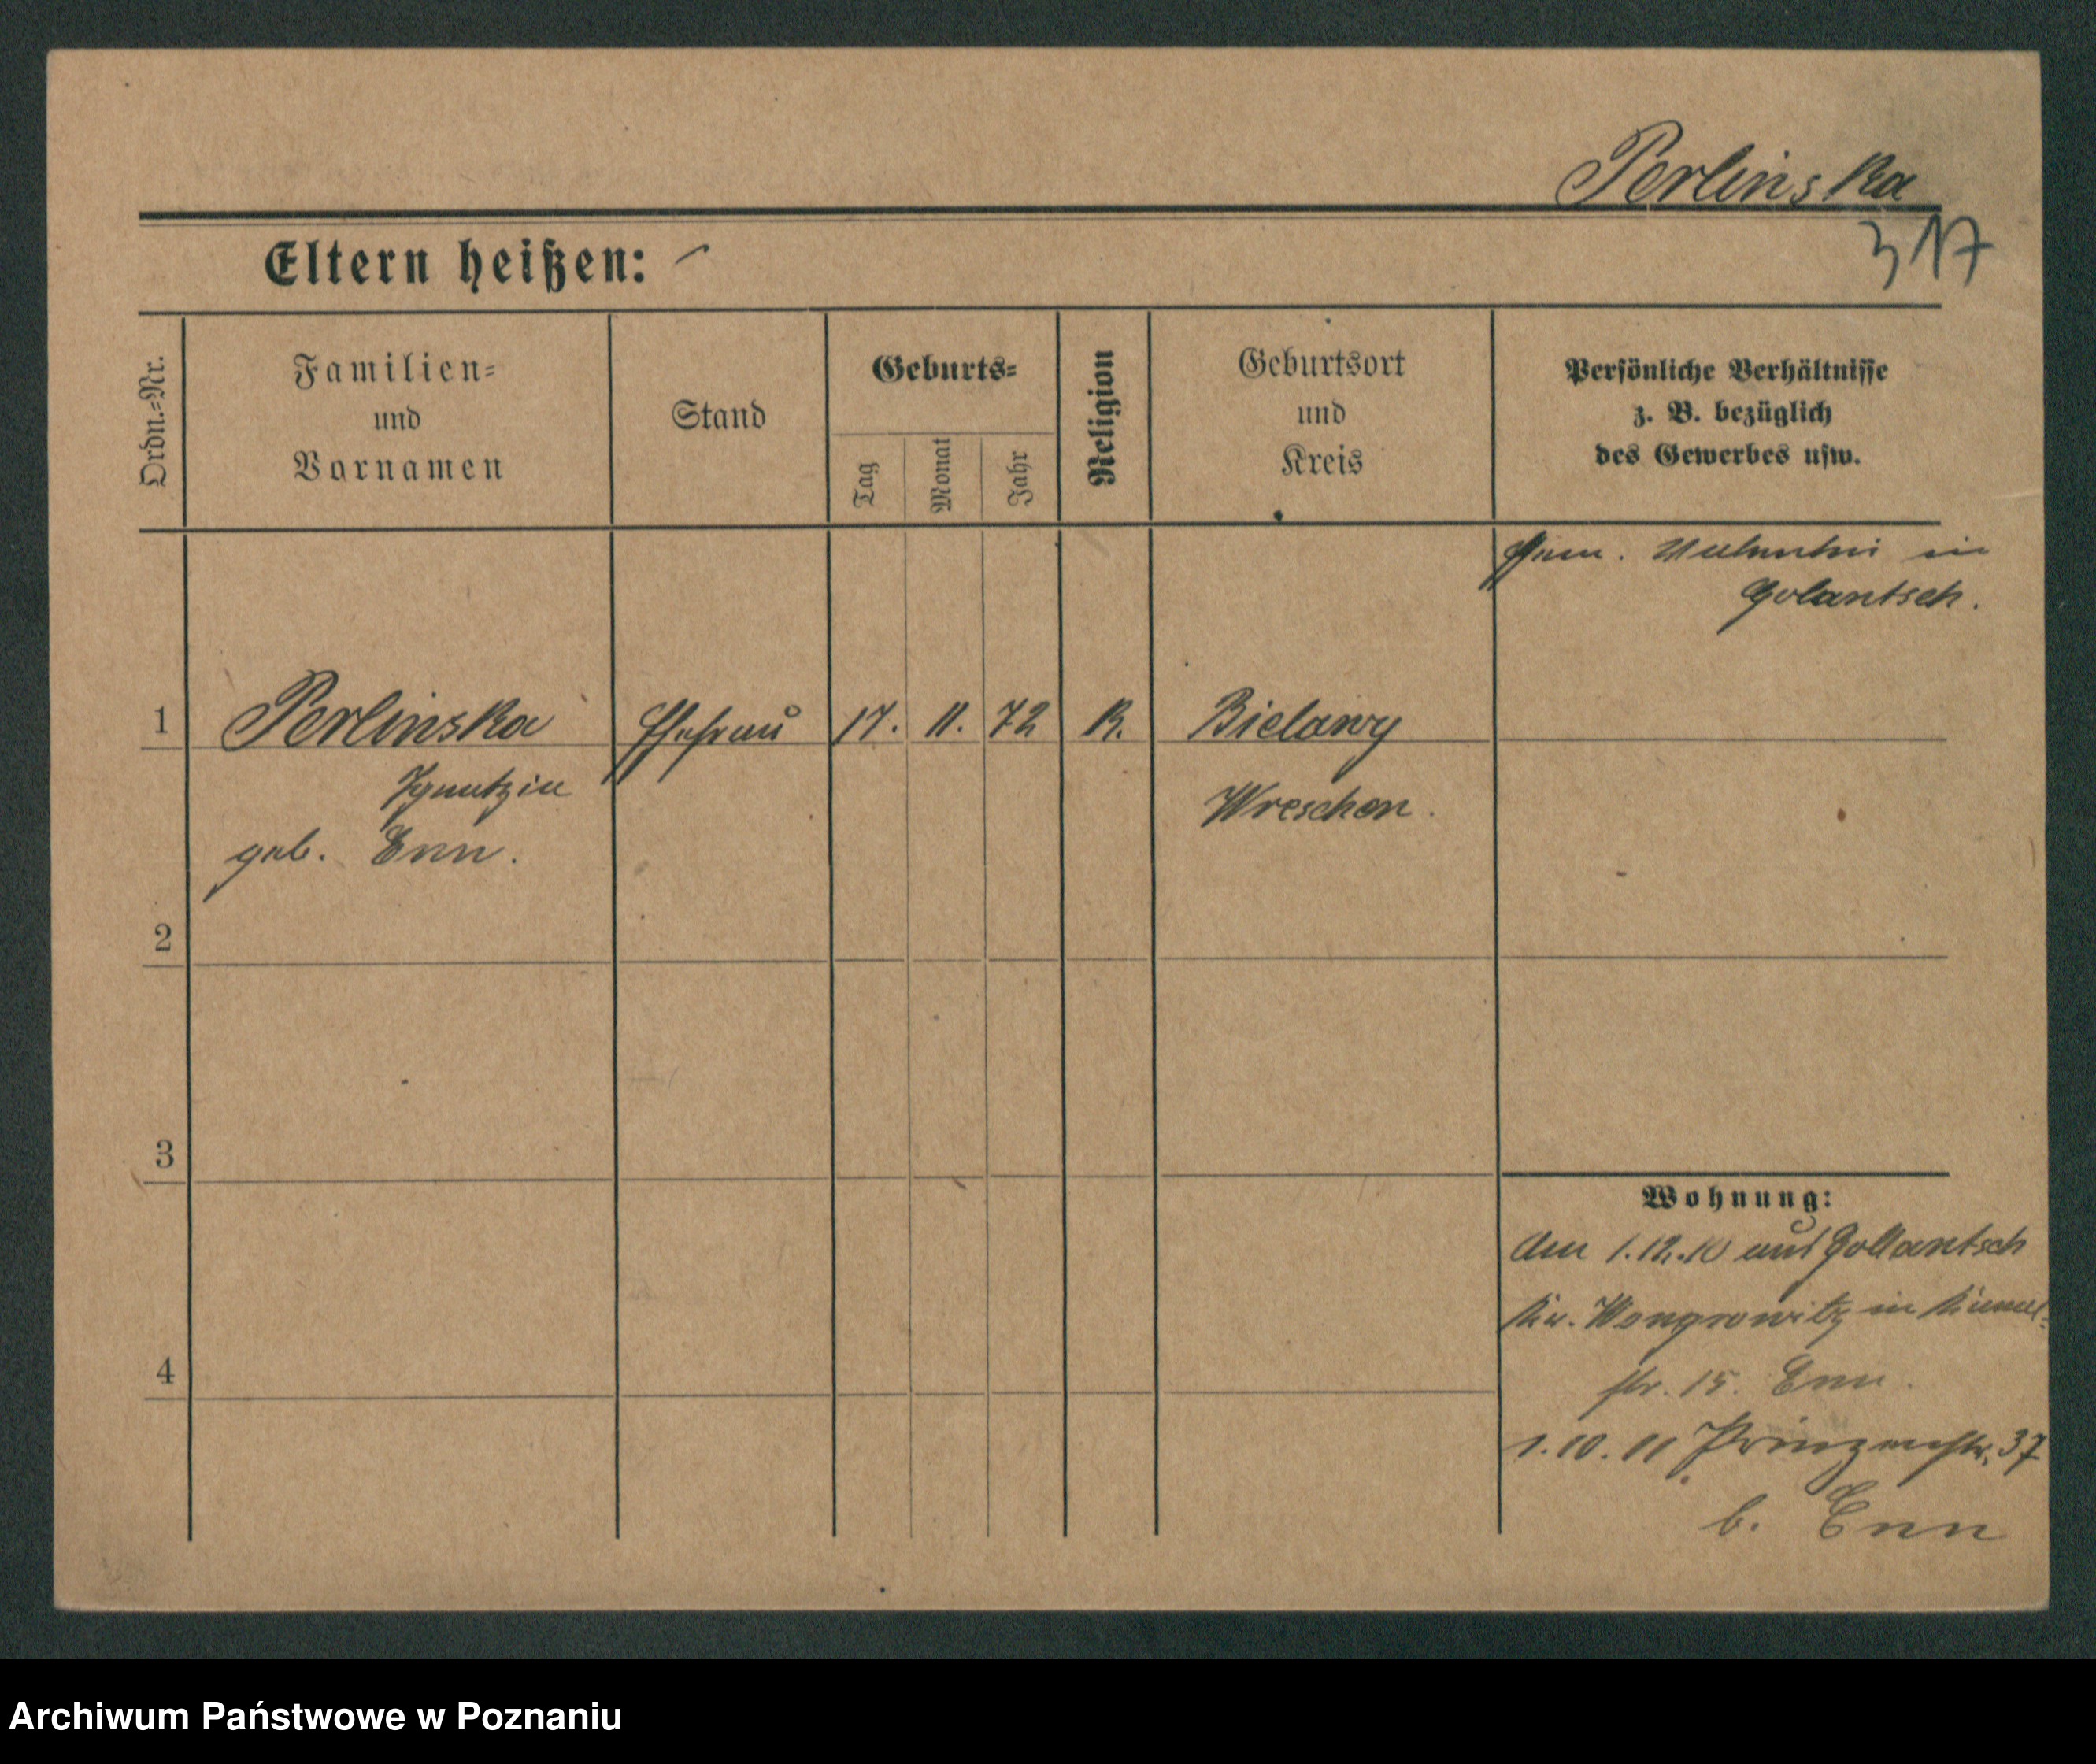 Perlinska
317
Eltern heißen: -
Ordn.-Nr.
Familien-
und
Vornamen
Stand
Geburts-
Tag
Monat
Jahr
Religion
Geburtsort
und
Kreis
Persönliche Verhältnisse
z. B. bezüglich
des Gewerbes usw.
in
Golantsch.
1
Perlinska
Ehefrau
17.
11.
72
K.
Bielawy
Ignatzia
Wreschen.
geb. Enn.
2
3
4
Wohnung:
Am 1.12.10 aus Gollantsch
Kr. Wongrowitz in
str. 15. Enn.
1.10.11 Prinzenstr. 37
b. Enn
Archiwum Państwowe w Poznaniu